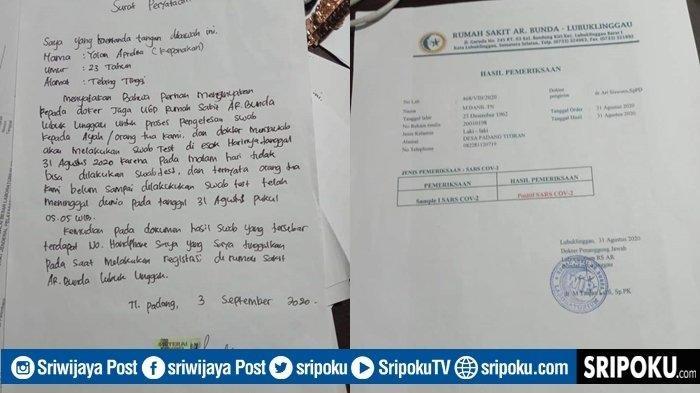 Surat Pernyataan
Saya yang bertanda tangan dibawah ini.
Nama : Yolan Aprdna (Keponakan)
Umur : 23 Tahun
Alamat : Tebing Tinggi
Menyatakan Bahwa Pernah Menanyakan
kepada dokter Jaga UGD Rumah Sakit AR. Bunda
Lubuk Linggau untuk Proses Pengetesan Swab
kepada Ayah/orang tua kami, dan dokter Menjawab
akan Melakukan Swab Test di esok Harinya, tanggal
31 Agustus 2020 karena Pada Malam hari tidak
bisa dilakukan swab test, dan ternyata orang tua
kami belum sampai dilakukan swab test telah
Meninggal dunia pada tanggal 31 Agustus pukul
05.05 WIB.
Kemudian pada dokumen hasil Swab yang tersebar
terdapat No. Handphone Saya yang saya tinggalkan
Pada Saat Melakukan registrasi di rumah sakit
AR. Bunda Lubuk Linggau.
Tl. Padang, 3 September 2020.
RUMAH SAKIT AR. BUNDA - LUBUKLINGGAU
Kota Lubuklinggau, Sumatera Selatan,
HASIL PEMERIKSAAN
No Lab : 868/VIII/2020
Dokter pengirim : dr Ari Siswoto,SpPD
Nama : M DANIL TN
Tanggal lahir : 25 Desember 1962
Tanggal Order : 31 Agustus 2020
No Rekam medis : 20010198
Tanggal Hasil : 31 Agustus 2020
Jenis Kelamin : Laki - laki
Alamat : DESA PADANG TITIRAN
No Telephone : 082281120719
JENIS PEMERIKSAAN : SARS COV-2
PEMERIKSAAN HASIL PEMERIKSAAN
Sample I SARS COV-2 Positif SARS COV-2
Lubuklinggau, 31 Agustus 2020
Dokter Penanggung Jawab
RS AR
Sp.PK
Sriwijaya Post sriwijaya Post sripoku SripokuTV sripoku.com
SRIPOKU.com